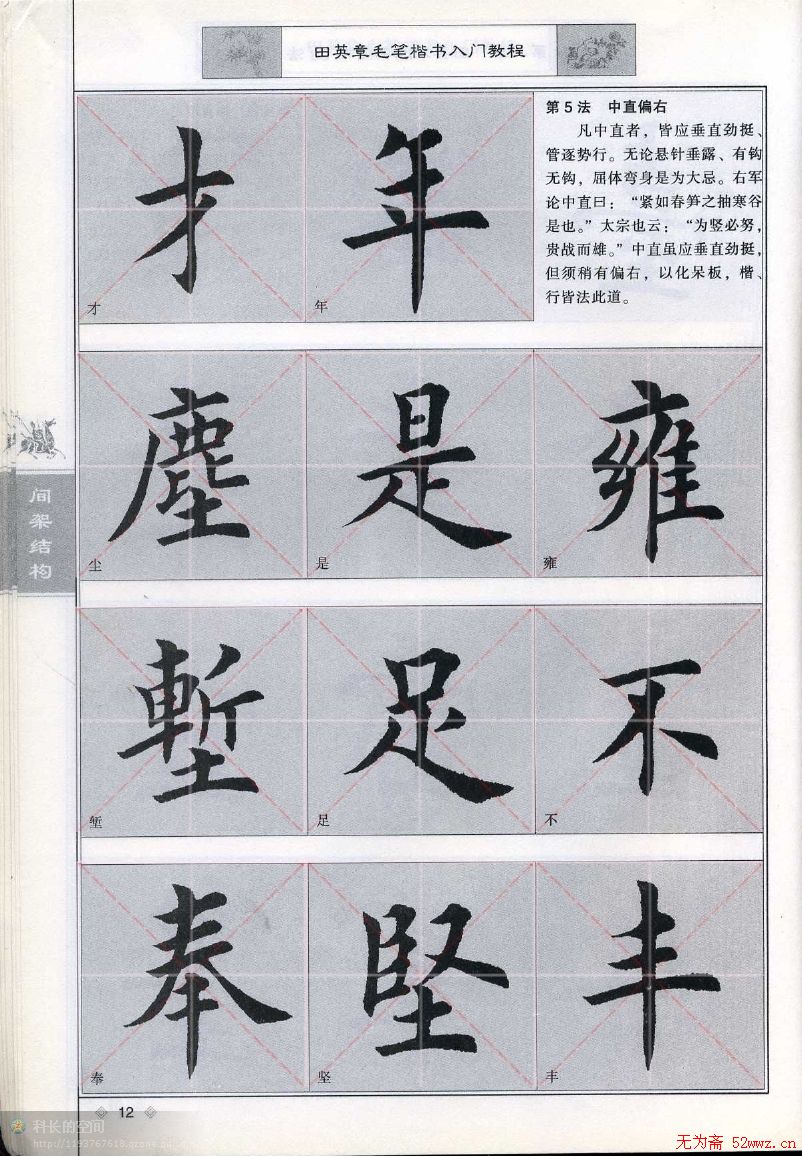 田英章毛笔楷书入门教程
第5法 中直偏右
凡中直者，皆应垂直劲挺、
管逐势行。无论悬针垂露、有钩
无钩，屈体弯身是为大忌。右军
论中直曰：“紧如春笋之抽寒谷
是也。”太宗也云：“为竖必努，
贵战而雄。”中直虽应垂直劲挺，
但须稍有偏右，以化呆板，楷、
行皆法此道。
才 年
才 年
塵 是 雍
尘 是 雍
塹 足 不
堑 足 不
奉 堅 丰
奉 坚 丰
间架结构
12
科长的空间
http://1193767618.qzone.qq.com
无为斋 52wwz.cn